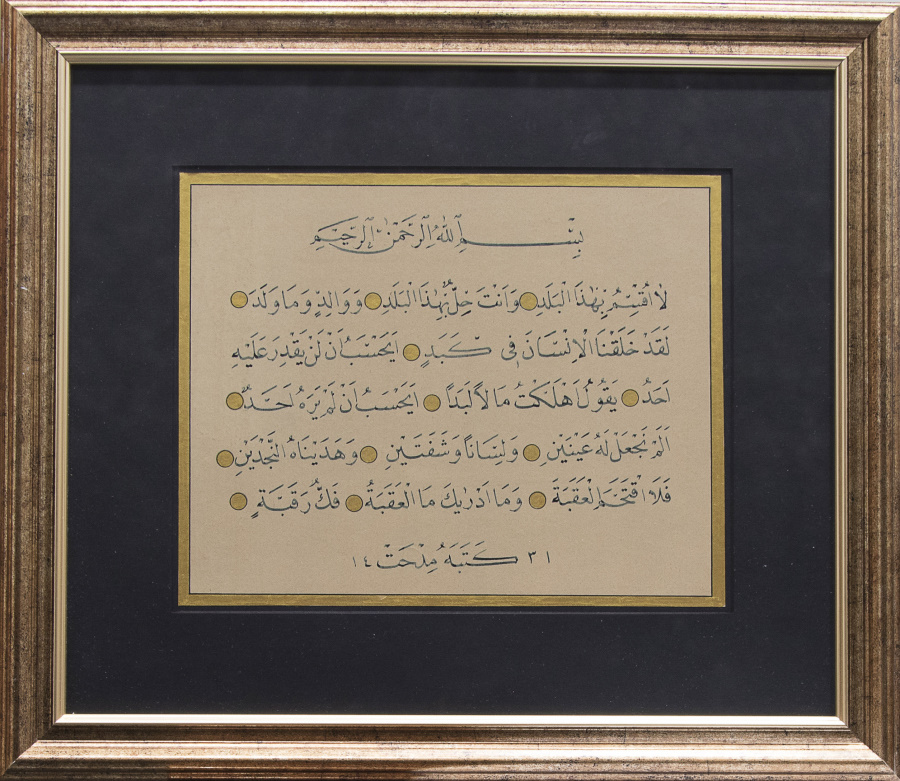 بِسْمِ اللهِ الرَّحْمٰنِ الرَّحِيمِ
لَا اُقْسِمُ بِهٰذَا الْبَلَدِ وَاَنْتَ حِلٌّ بِهٰذَا الْبَلَدِ وَوَالِدٍ وَمَا وَلَدَ
لَقَدْ خَلَقْنَا الْاِنْسَانَ فِي كَبَدٍ اَيَحْسَبُ اَنْ لَنْ يَقْدِرَ عَلَيْهِ
اَحَدٌ يَقُولُ اَهْلَكْتُ مَالًا لُبَدًا اَيَحْسَبُ اَنْ لَمْ يَرَهُ اَحَدٌ
اَلَمْ نَجْعَلْ لَهُ عَيْنَيْنِ وَلِسَانًا وَشَفَتَيْنِ وَهَدَيْنَاهُ النَّجْدَيْنِ
فَلَا اقْتَحَمَ الْعَقَبَةَ وَمَا اَدْرٰيكَ مَا الْعَقَبَةُ فَكُّ رَقَبَةٍ
٣١ كَتَبَهُ مِدْحَتْ ١٤